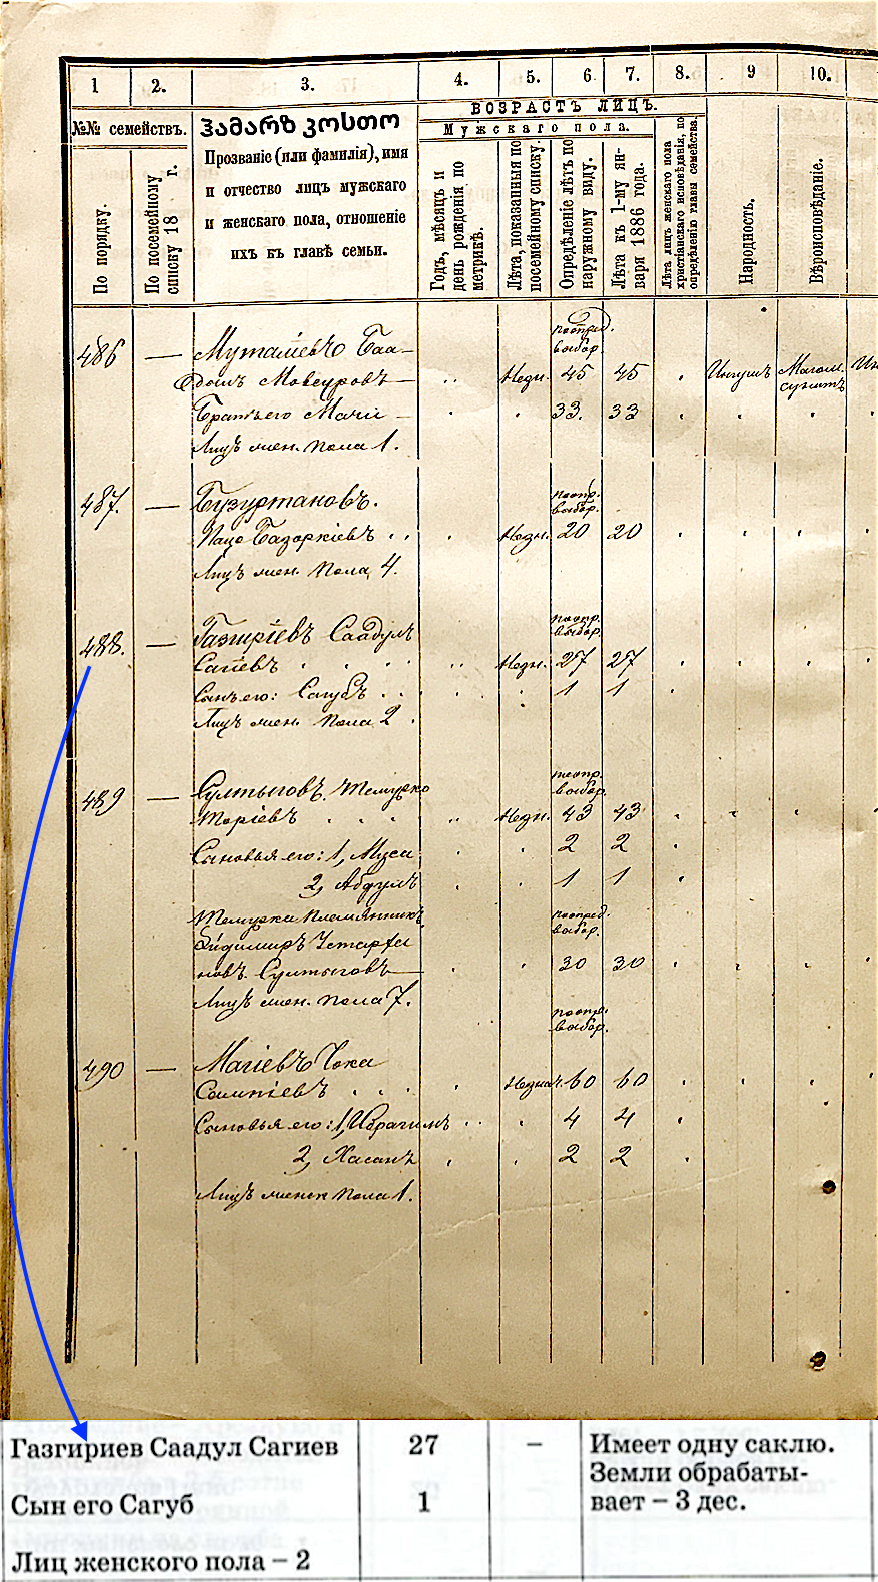 1 2. 3. 4. 5. 6. 7. 8. 9 10.
ВОЗРАСТЪ ЛИЦЪ.
№№ семействъ.
Мужскаго пола.
ჰამარზ კოსთო
Прозваніе (или фамилія), имя
и отчество лицъ мужскаго
и женскаго пола, отношеніе
ихъ къ главѣ семьи.
По порядку.
По посемейному
списку 18 г.
Годъ, мѣсяцъ и
день рожденія по
метрикѣ.
Лѣта, показанныя по
посемейному списку.
Опредѣленіе лѣтъ по
наружному виду.
Лѣта къ 1-му ян-
варя 1886 года.
Лѣта лицъ женскаго пола
христіанскаго исповѣданія, по
опредѣленію главы семейства.
Народность.
Вѣроисповѣданіе.
486 — Муталіевъ Баа-
домъ Мовсуровъ — 45 45 Ингушъ Магом.
сунитъ
Братъ его Мачи — 33. 33
Лицъ жен. пола 1.
487. — Бузуртановъ.
Базоркіевъ 20 20
Лицъ жен. пола 4.
488. — Газгиріевъ Саадулъ
Сагіевъ 27 27
Сынъ его: Сагубъ 1 1
Лицъ жен. пола 2.
489 — Султыговъ Темурко
Торіевъ 43 43
Сыновья его: 1, Муса 2 2
2, Абдулъ 1 1
Темурка племянникъ
новъ Султыговъ — 30 30
Лицъ жен. пола 7.
490 — Магіевъ Чока
60 60
Сыновья его: 1, Ибрагимъ 4 4
2, Хасанъ 2 2
Лицъ женск пола 1.
Газгириев Саадул Сагиев 27 – Имеет одну саклю.
Земли обрабаты-
Сын его Сагуб 1 вает – 3 дес.
Лиц женского пола – 2